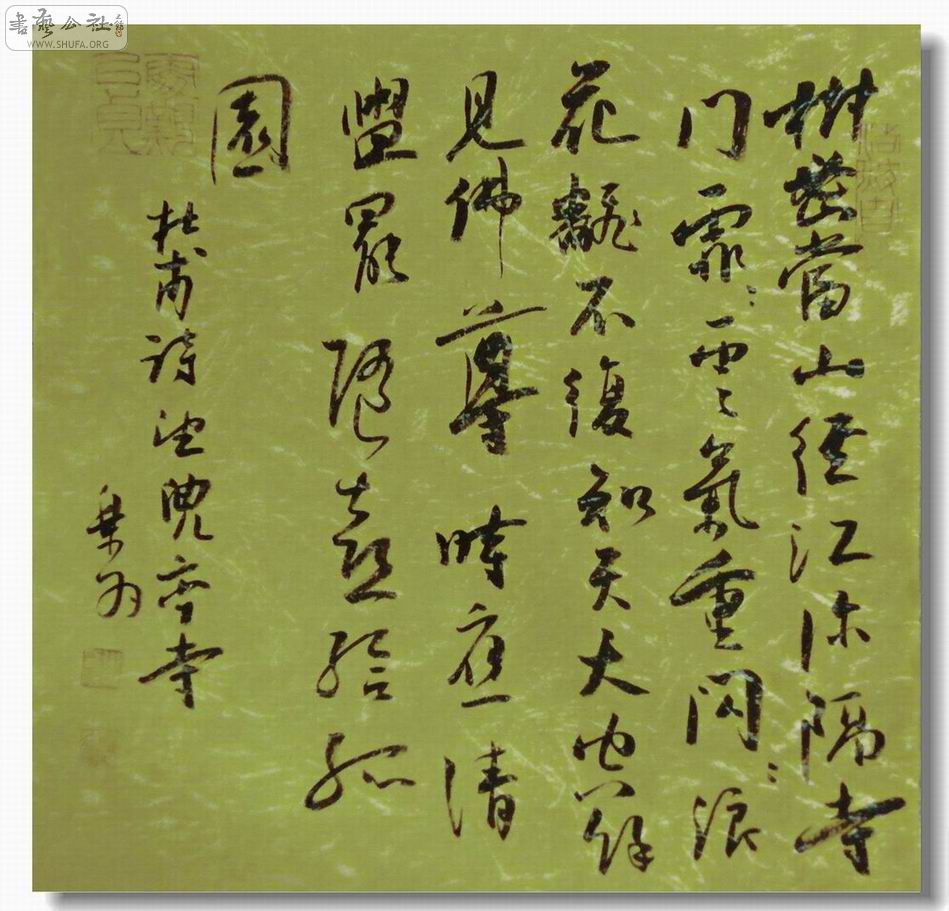 書藝公社
WWW.SHUFA.ORG
樹密當山徑江深隔寺
門霏〻雲氣重閃〻浪
花飜不復知天大空餘
見佛尊時應清
盥罷隨喜給孤
園
杜甫詩望兜率寺